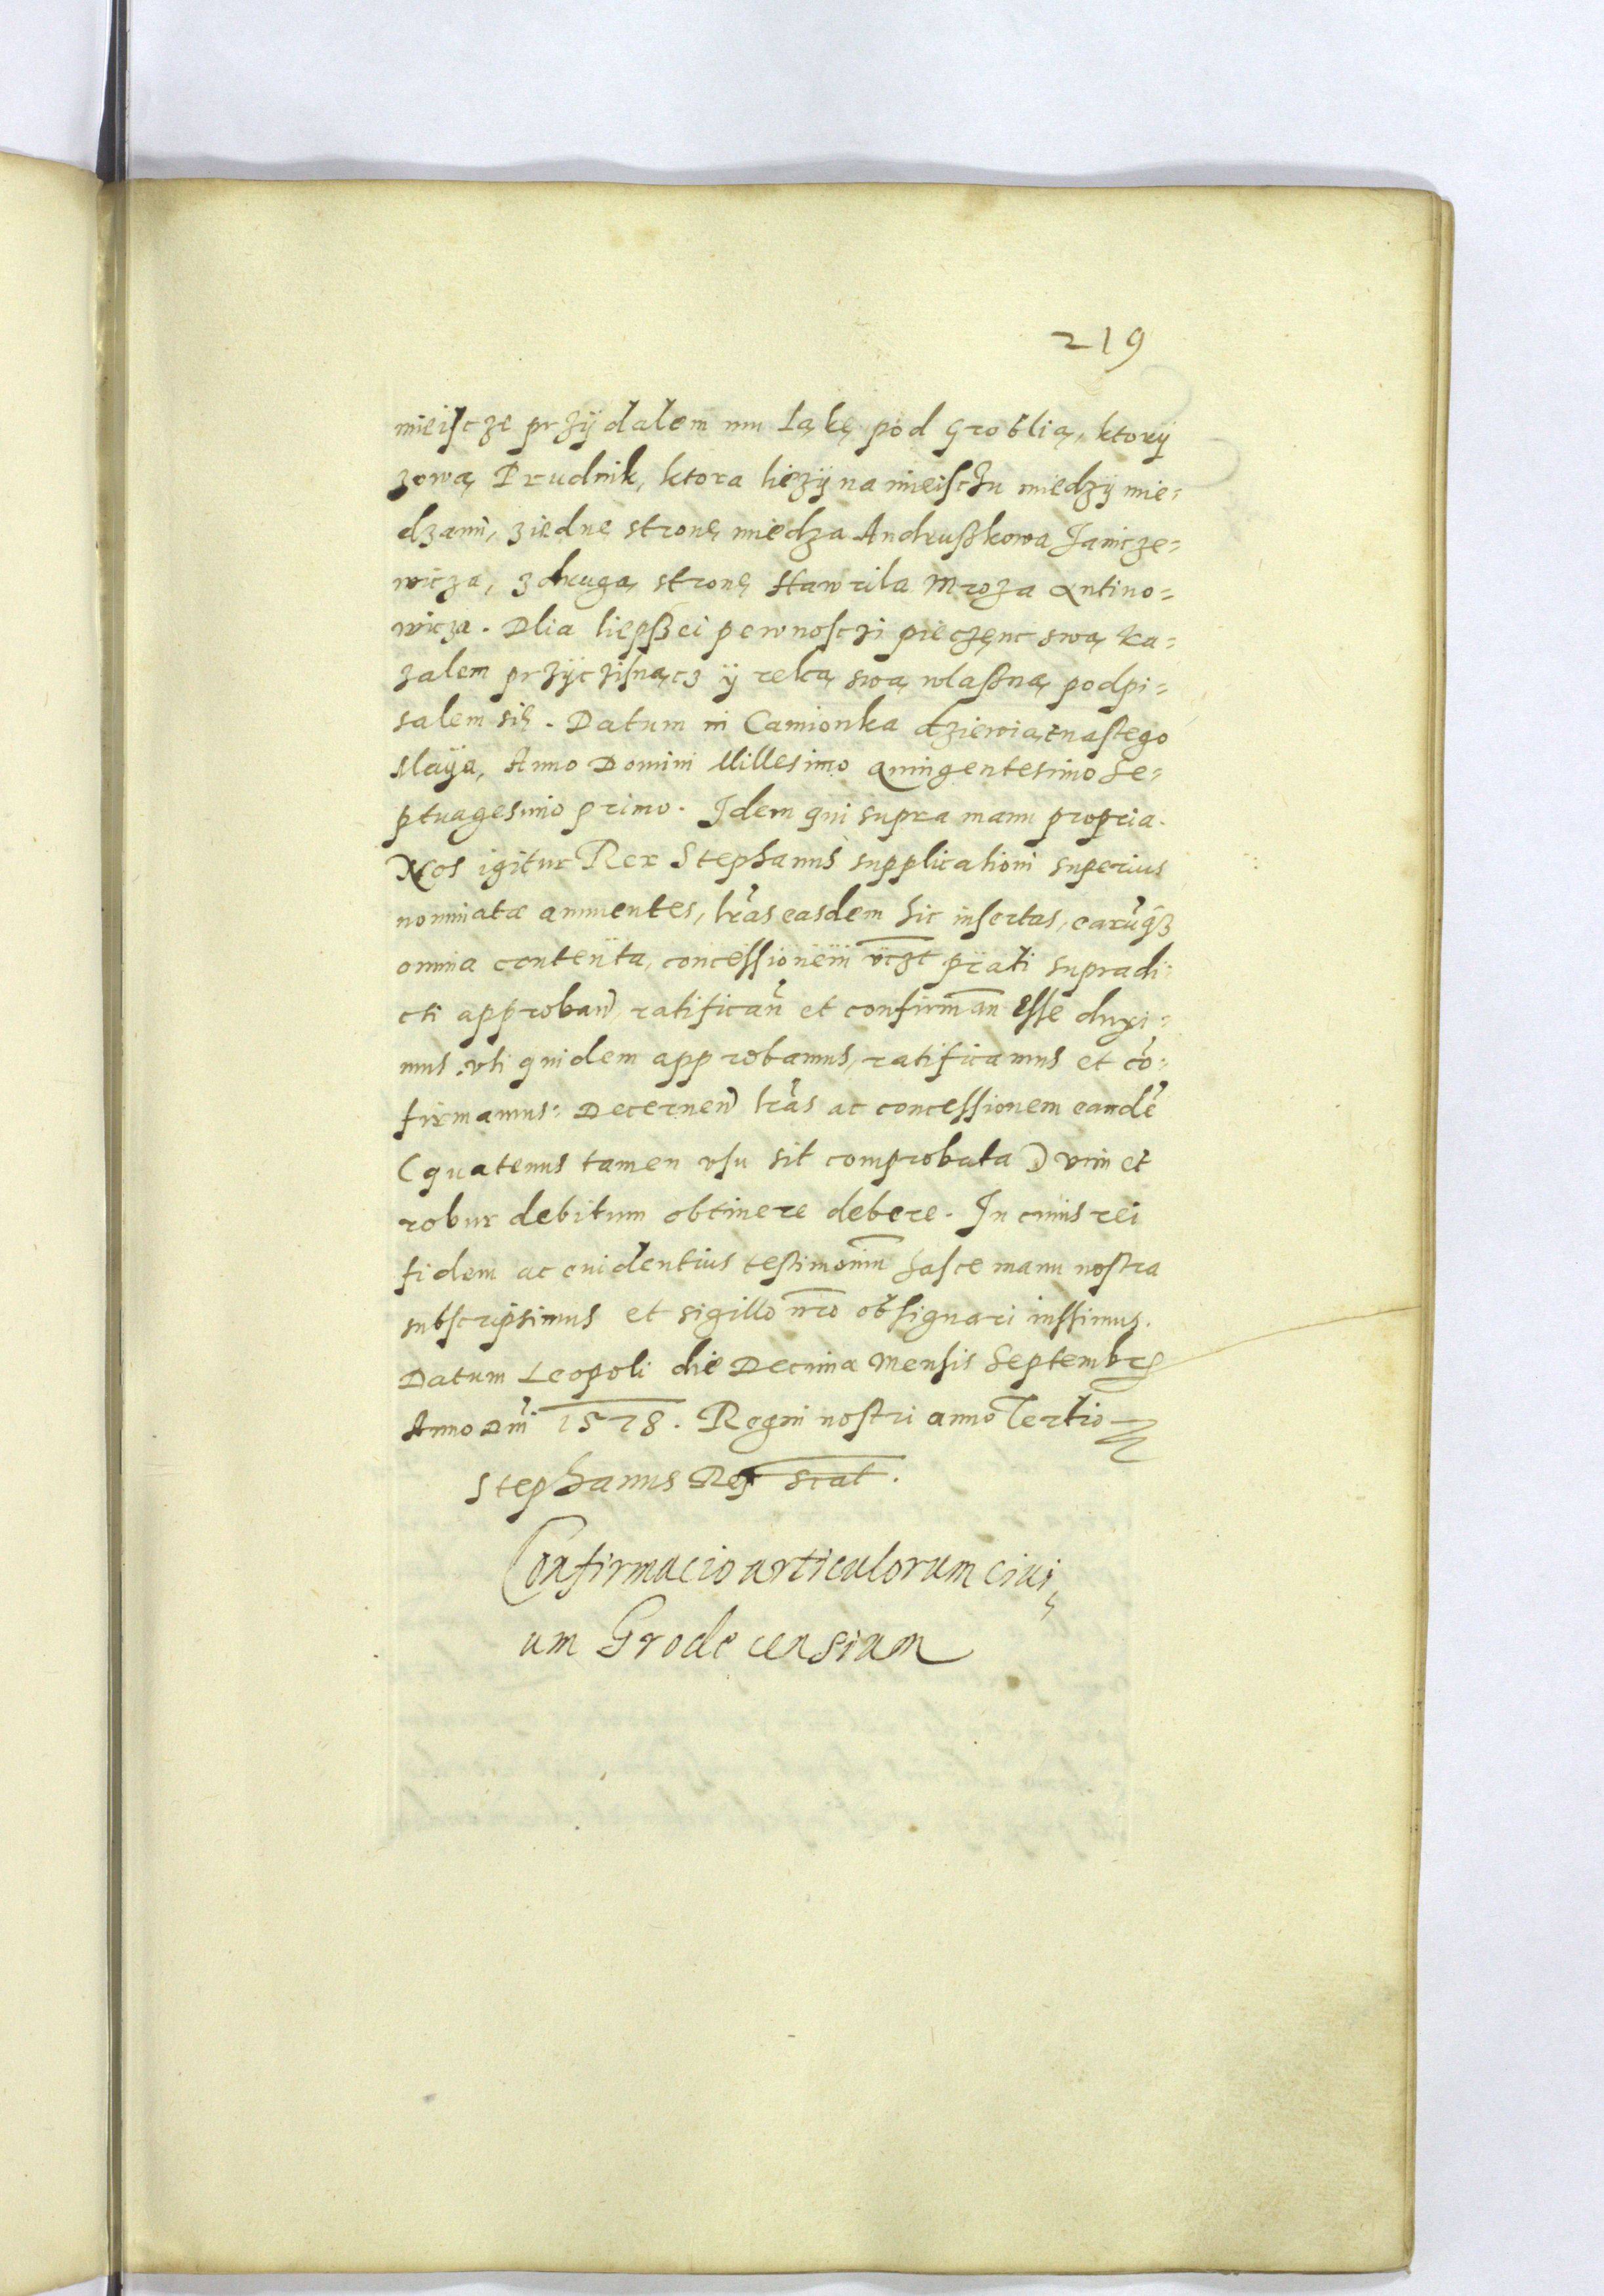 219
mieiscze przÿdalem mu Ląkę pod Groblią, ktorÿ
zową Prudnik, ktora liezÿ na mieisczu miedzÿ mie=
dzami, ziednę stronę miedza Andrußkowa Janicze=
wicza, zdrugą stronę Hawrila Mroza Antino=
wicza. Dlia liepßei pewnosczi pieczęnc swą ka=
zalem przÿczisnącz ÿ reką swą wlaßną podpi=
salem się. Datum in Camionka dziewiątnastego
Maÿa, Anno Domini Millesimo quingentesimo Se=
ptuagesimo primo. Idem qui supra manu propria.
Nos igitur Rex Stephanus supplicationi superius
nominatæ annuentes, lr̃as easdem hic insertas, earũq̃ȝ
omnia contenta, concessionem vīczt prati supradi=
cti approban̄, ratifican̄ et confirman̄ esse duxi=
mus, vti quidem approbamus, ratificamus et cõ=
firmamus: Decernen̄ lr̃as ac concessionem eandẽ
(quatenus tamen vsu sit comprobata) vim et
robur debitum obtinere debere. In cuius rei
fidem ac euidentius testimoniū hasce manu nostra
subscripsimus et sigillo nr̄o obsignari iussimus.
Datum Leopoli die Decima Mensis Septembꝶ
Anno Dn̄i 1578. Regni nostri anno Tertio
Stephanus Rex s̄cāt.
Confirmacio articulorum ciui=
um Grodecensium